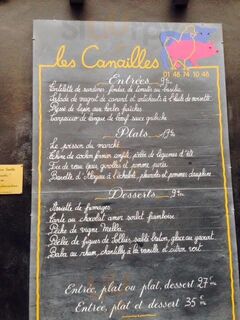 Les Canailles
01 48 74 10 48
Entrées
Cartelette de sardines, fondue de tomate ou basilic
Salade de magret de canard et artichauts à l'huile de noisette
Pressé de lapin aux herbes fraîches
Carpaccio de langue de bœuf sauce gribiche
Plats
Le poisson du marché
Echine de cochon fermier confite, poêlée de légumes d'été
Foie de veau épais, girolles et pomme purée
Bavette d'Aloyau à l'échalote, pleurotes et pommes dauphine
Desserts
Assiette de fromages
Tarte au chocolat amer, sorbet framboise
Pêche de vigne Melba
Poêlée de figues de Solliès, sablé breton, glace au yaourt
Baba au rhum, chantilly à la vanille et citron vert
Entrée, plat ou plat, dessert 27€
Entrée, plat et dessert 35€